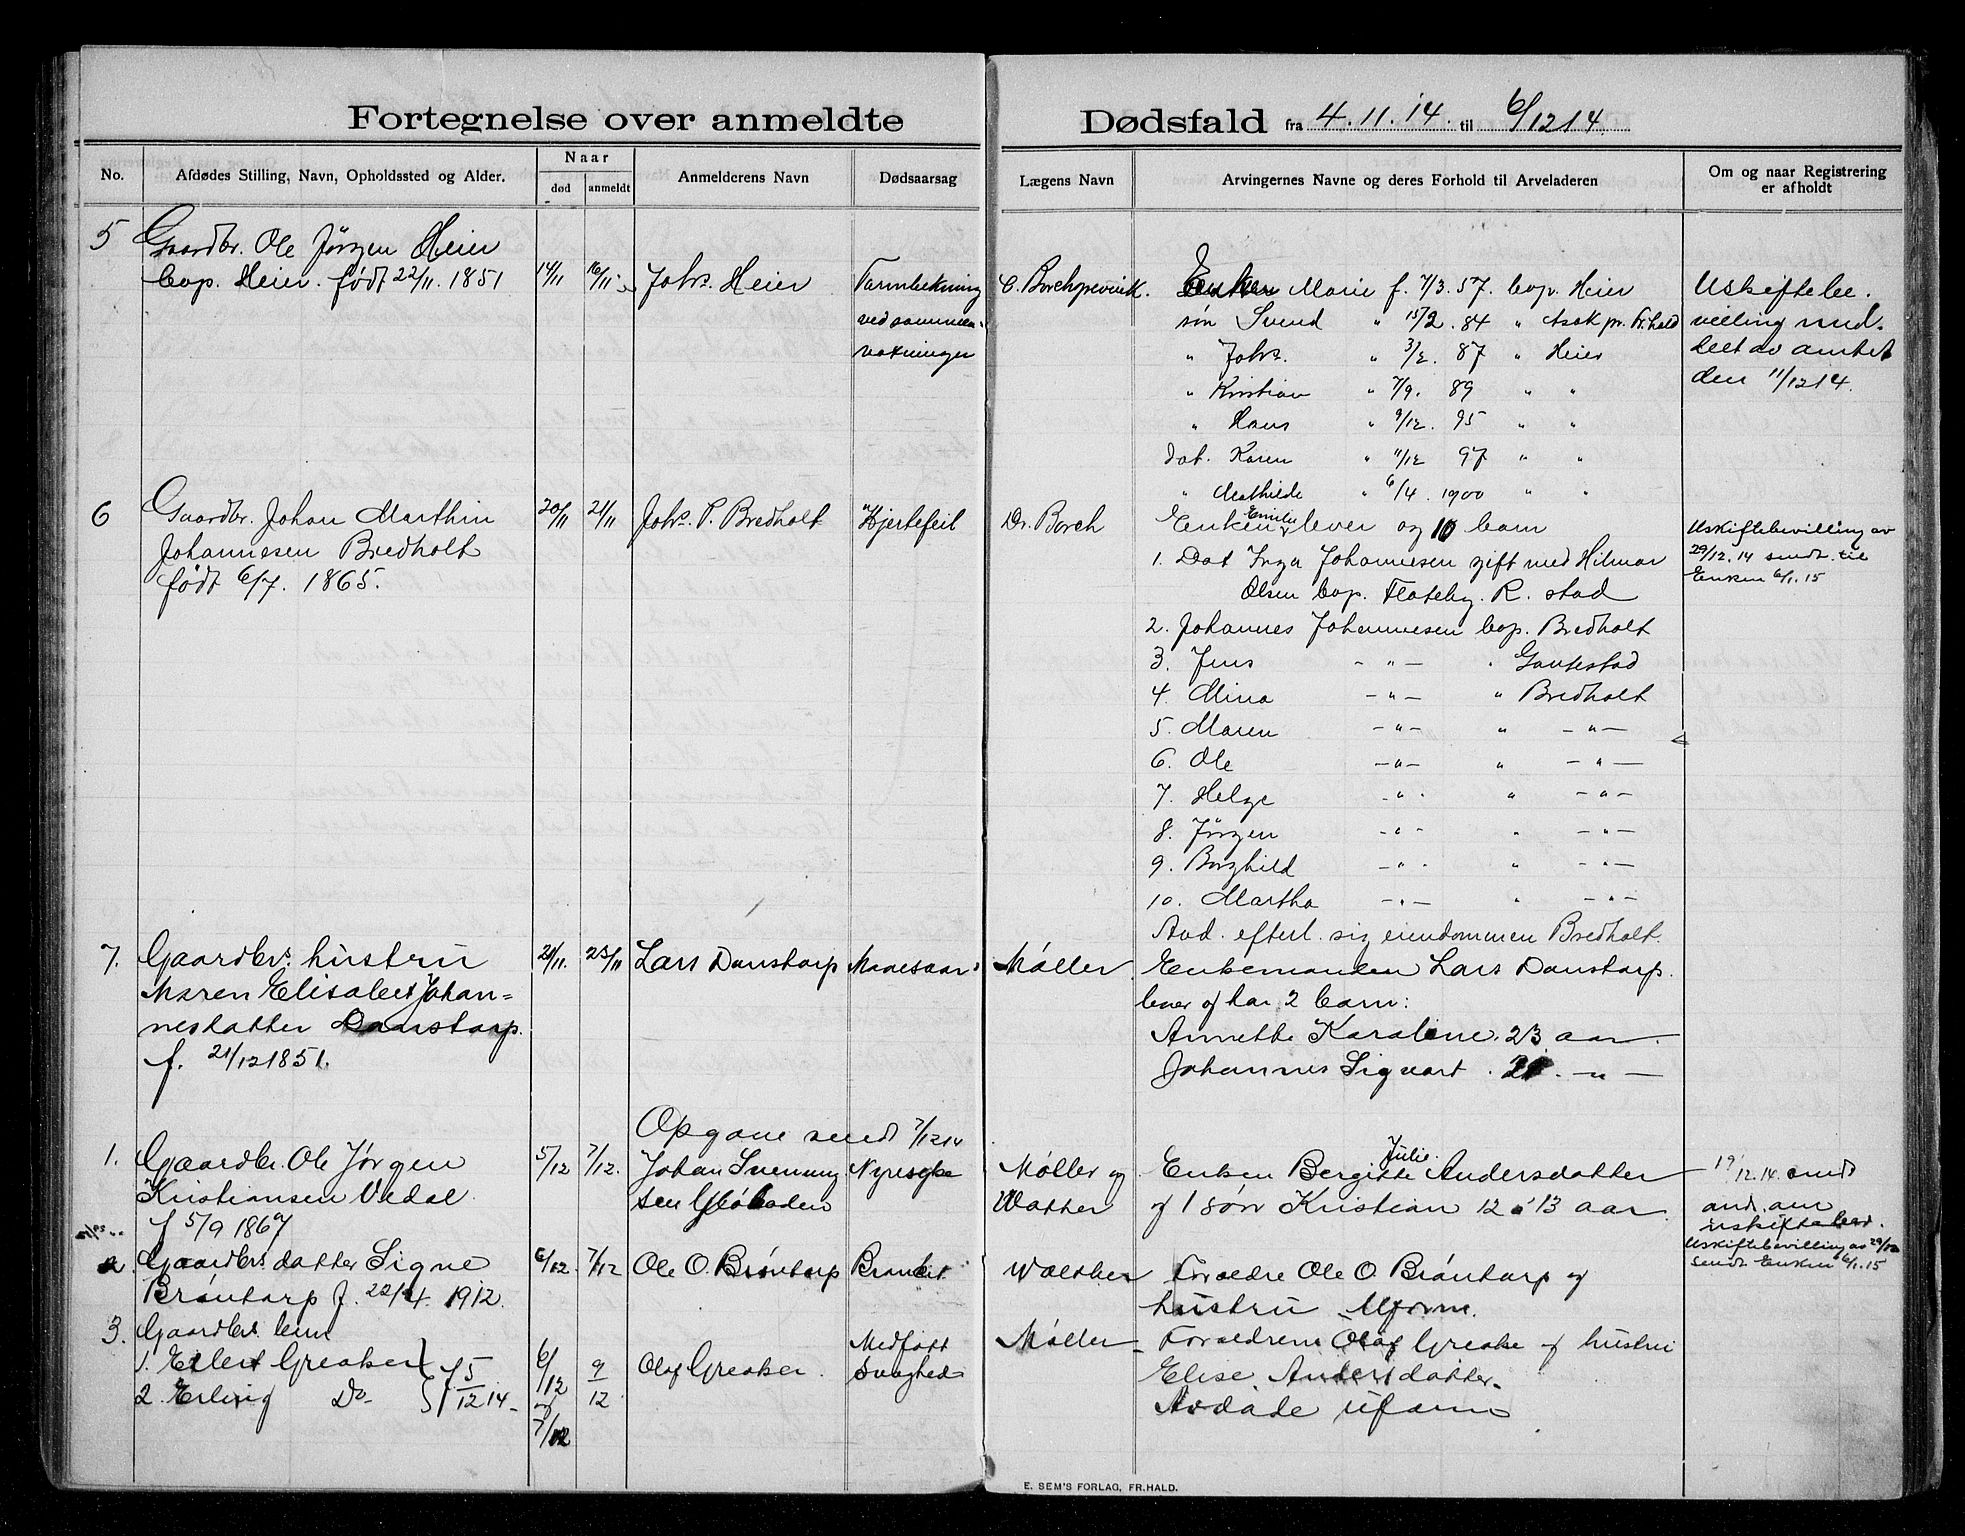 Fortegnelse over anmeldte Dødsfald fra 4.11.14. til 6/12 14.
No. Afdødes Stilling, Navn, Opholdssted og Alder. Naar død anmeldt Anmelderens Navn Dødsaarsag Lægens Navn Arvingernes Navne og deres Forhold til Arveladeren Om og naar Registrering er afholdt
5 Gaardbr. Ole Jørgen Heier
bop. Heier. født 22/11. 1851
14/11 16/11 Johs. Heier
Tarmlukning
ved sammen-
voxninger
C. Borchgrevink.
Enken Marie f. 7/3. 57. bop. Heier
søn Svend " 15/2. 84 " Asak pr. Fr.hald
" Johs. " 3/2. 87 " Heier
" Kristian " 7/9. 89 " "
" Hans " 9/12. 95 " "
dat. Karen " 11/12 97 " "
" Mathilde " 6/4. 1900 " "
Uskiftebe.
villing med-
delt av amtet
den 11/12 14.
6 Gaardbr. Johan Marthin
Johannesen Bredholt
født 6/7. 1865.
20/11 21/11 Johs. P. Bredholt Hjertefeil Dr. Borch
Enken Emilie lever og 10 barn
1. Dat Inga Johannesen gift med Hilmar
Olsen bop. Flateby. R. stad
2. Johannes Johannesen bop. Bredholt
3. Jens - " - " Gautestad
4. Mina - " - " Bredholt
5. Maren - " - " - " -
6. Ole - " - " - " -
7. Helge - " - " - " -
8. Jørgen - " - " - " -
9. Borghild - " - " - " -
10. Martha - " - " - " -
Avd. efterl. sig eiendommen Bredholt.
Uskiftebevilling av
29/12. 14 sendt til
Enken 6/1. 15
7. Gaardbrs. hustru
Maren Elisabet Johan=
nesdatter Danstorp.
f. 21/12 1851.
21/11. 25/11 Lars Danstorp Mavesaar Møller
Enkemanden Lars Danstorp.
lever og har 2 barn:
Annette Karoline. 23 aar.
Johannes Sigvart . 21. - " -
Opgave sendt 7/12 14
1. Gaardbr. Ole Jørgen
Kristiansen Vedal
f 5/9 1867
5/12 7/12. Johan Svenning
sen
Nyresyke
Møller og
Walther
Enken Bergitte Julie Andersdatter
og 1 søn Kristian 12 à 13 aar
19/12. 14. sendt
and. om
uskiftebev.
Uskiftebevilling av 29/12
sendt Enken 6/1. 15
2. Gaardbrs. datter Signe
Brøntorp f. 22/4. 1912.
6/12 7/12 Ole O. Brøntorp Brændt Walther
Forældre Ole O. Brøntorp og
hustru
3. Gaardbrs. børn
1. Eilert Greaker } f 5/12 14 -
2. Erling Do- }
6/12 og 7/12 9/12 Olaf Greaker.
Medfødt
Svaghed
Møller
Forældrene Olaf Greake og hustru
Elise Andersdatter.
Avdøde uform
E. SEM'S FORLAG, FR.HALD.